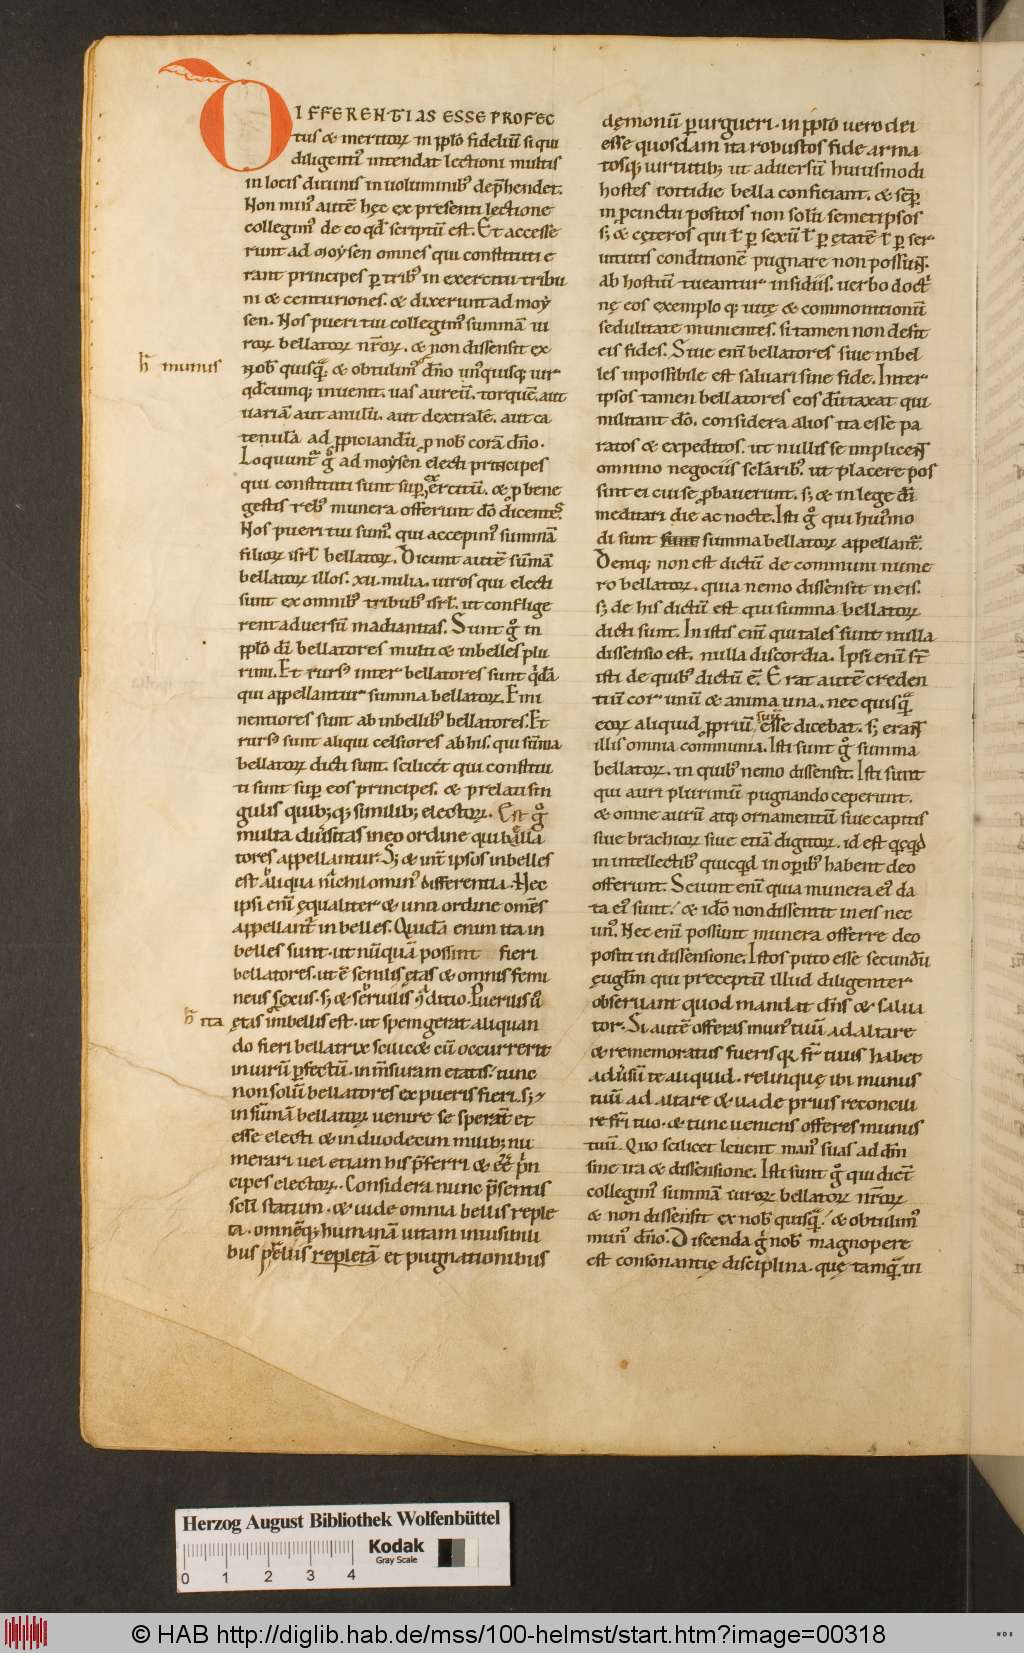 DIFFERENTIAS ESSE PROFEC
tus & meritoꝝ in pp̄lo fideliū si qui
diligentiꝰ intendat lectioni multis
in locis diuinis in uoluminibꝰ dep̄hendet.
Non minꝰ autē hęc ex presenti lectione
collegimꝰ de eo qđ scriptū est. Et accesse
runt ad moẏsen omnes qui constituti e
rant principes ꝑ tribꝰ in exercitu tribu
ni & centuriones. & dixerunt ad moẏ
sen. Nos pueri tui collegimꝰ summā ui
roꝝ bellatoꝝ nr̄oꝝ. & non dissensit ex
h̄ munus
nob̄ quisq̄. & obtulimꝰ dn̄o unꝰquisq; uir
qđcumq; inuenit. uas aureū. torquē. aut
uariā aut anulū. aut dextralē. aut ca
tenulā ad ꝓpiciandū ꝓ nob̄ corā dn̄o.
Loquunt̄ gͦ ad moẏsen electi principes
qui constituti sunt suꝑ exercitū. & ꝓ bene
gestis rebꝰ munera offerunt dō dicentes.
Nos pueri tui sumꝰ. qui accepimꝰ summā
filioꝝ isrl̄ bellatoꝝ. Dicunt autē sūmā
bellatoꝝ illos. xii. milia. uiros qui electi
sunt ex omnibꝰ tribubꝰ isrl̄. ut conflige
rent aduersū madianitas. Sunt gͦ in
pp̄lo dī bellatores multi & inbelles plu
rimi. Et rursꝰ inter bellatores sunt qͥdā
qui appellantur summa bellatoꝝ. Emi
nentiores sunt ab inbellibꝰ bellatores. Et
rursꝰ sunt aliqui celsiores ab his. qui sūma
bellatoꝝ dicti sunt. scilicet qui constitu
ti sunt suꝑ eos principes. & prelati sin
gulis quib;q; similib; electoꝝ. Est gͦ
multa diūsitas in eo ordine qui balla
tores appellantur. S; & int̄ ipsos inbelles
est aliqua nichilominꝰ differentia. Nec
ipsi enī ęqualiter & uno ordine omēs
appellant̄ in belles. Quidā enim ita in
belles sunt. ut nūquā possint fieri
bellatores. ut ē senilis ętas & omnis femi
neus sexus. s; & seruilis ꝯditio. Puerilis ū
h̄ ita
ętas imbellis est. ut spem gerat aliquan
do fieri bellatrix sciuc & cū occurrerit
in uirū ꝑfectū. in m̄suram etatis. tunc
non solū bellatores ex pueris fieri. s; &
in sūmā bellatoꝝ uenire se sperāt et
esse electi & in duodecim milib; nu
merari uel etiam his p̄ferri & ēē p̄n
cipes electoꝝ. Considera nunc p̄sentis
scl̄i statum. & uide omnia bellis reple
ta. omnēq; humanā uitam inuisibili
bus pręliis repletā et pugnationibus
dęmonū ꝑurgueri. in pp̄lo uero dei
esse quosdam ita robustos fide arma
tosq; uirtutib; ut aduersū huiusmodi
hostes cottidie bella conficiant. & semꝑ
in ꝓcinctu positos non solū semetipsos
s; & cęteros qui ł ꝑ sexū ł ꝑ ętatē ł ꝑ ser
uitutis conditionē pugnare non possunt.
ab hostiū tueantur insidiis. uerbo doctͥ
nę eos exemplo q; uitę & commonitionū
sedulitate munientes. si tamen non desit
eis fides. Siue enī bellatores siue inbel
les inpossibile est saluari sine fide. Inter
ipsos tamen bellatores eos dūtaxat qui
militant dō. considera alios ita esse pa
ratos & expeditos. ut nullis se implicent
omnino negociis sclarib̄. ut placere pos
sint ei cui se ꝓbauerunt. s; & in lege dī
meditari die ac nocte. Isti gͦ qui huꝰmo
di sunt sunt summa bellatoꝝ appellant̄.
Deniq; non est dictū de communi nume
ro bellatoꝝ. quia nemo dissensit in eis.
s; de his dictū est qui summa bellatoꝝ
dicti sunt. In istis enī qui tales sunt nulla
dissensio est. nulla discordia. Ipsi enī sт̄
isti de quibꝰ dictū ē. Erat autē creden
tiū cor unū & anima una. nec quisq̄
eoꝝ aliquid ꝓpriū suū esse dicebat. s; erant
illis omnia communia. Isti sunt gͦ summa
bellatoꝝ. in quibꝰ nemo dissensit. Isti sunt
qui auri plurimū pugnando ceperunt.
& omne aurū atq; ornamentū siue captiis
siue brachioꝝ siue etiā digitoꝝ. id est qͥcqͥd
in intellectibꝰ quicqͥd in oꝑibꝰ habent deo
offerunt. Sciunt enī quia munera eiꝰ da
ta eiꝰ sunt. & idō non dissentit in eis nec
unꝰ. Nec enī possunt munera offerre deo
positi in dissensione. Istos puto esse secundū
ęuglm̄ qui preceptū illud diligenter
obseruant quod mandat dn̄s & salua
tor. Si autē offeras munꝰ tuū ad altare
& rememoratus fueris qꝛ fr̄ tuus habet
adūsū te aliquid. relinque ibi munus
tuū ad altare & uade prius reconcili
re fr̄i tuo. & tunc ueniens offeres munus
tuū. Quo scilicet leuent manꝰ suas ad dm̄
sine ira & dissensione. Isti sunt gͦ qui dicт̄
collegimꝰ summā uiroꝝ bellatoꝝ nr̄oꝝ
& non dissensit ex nob̄ quisq̄. & obtulimꝰ
munꝰ dn̄o. Discenda gͦ nob̄ magnopere
est consonantię disciplina. quę tamq̄ in
Herzog August Bibliothek Wolfenbüttel
Kodak
Gray Scale
0 1 2 3 4
© HAB http://diglib.hab.de/mss/100-helmst/start.htm?image=00318